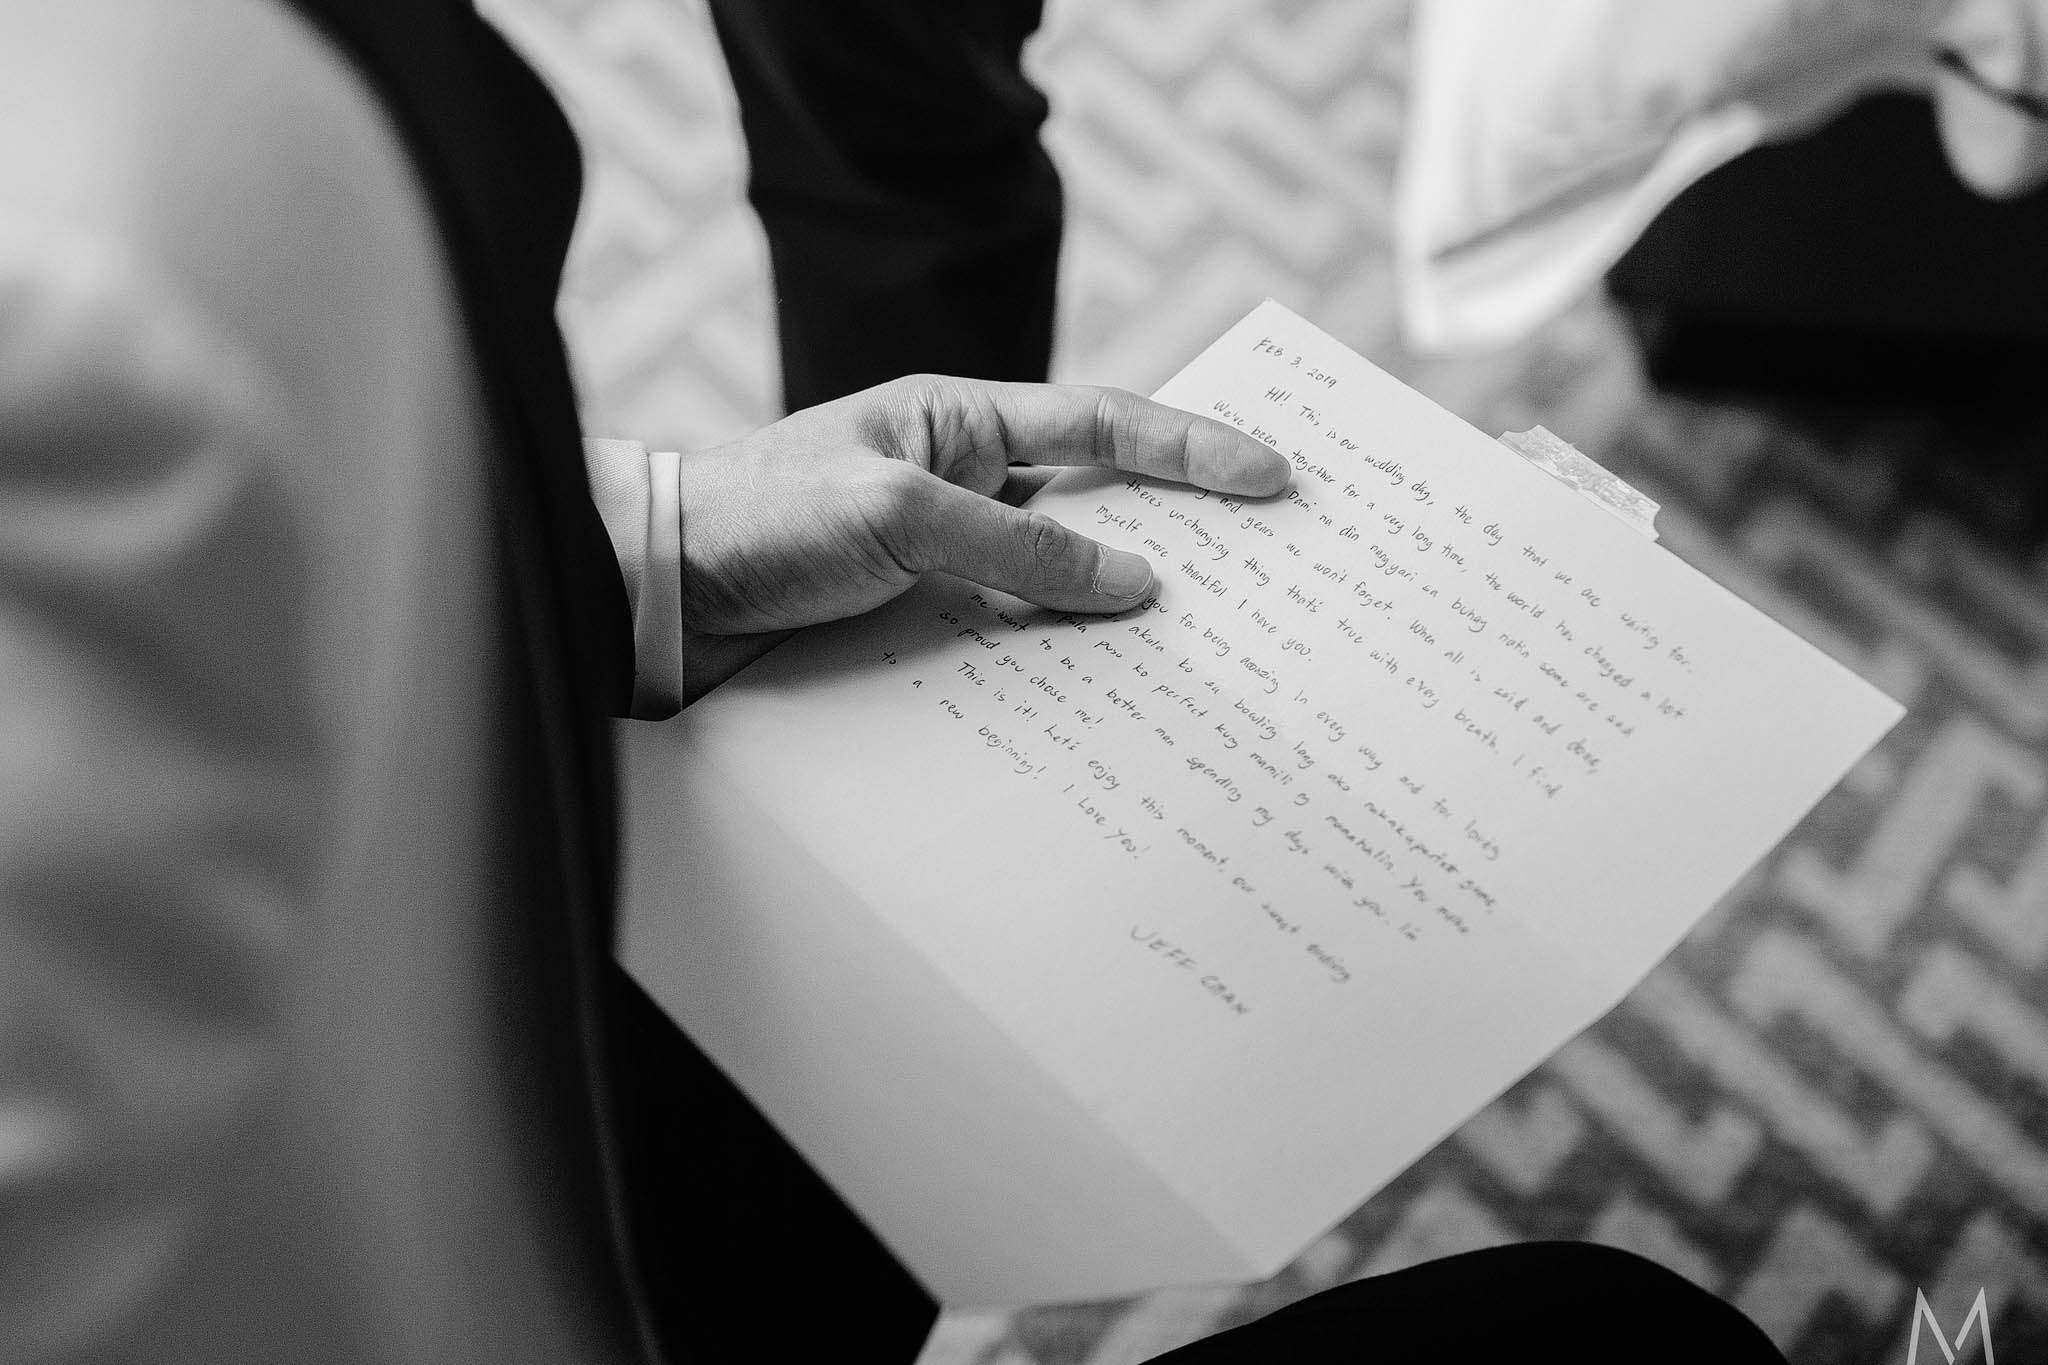 FEB 3, 2019
HI! This is our wedding day, the day that we are waiting for.
We've been together for a very long time, the world has changed a lot
Dami na din nangyari sa buhay natin some are sad
and years we won't forget. When all is said and done,
there's unchanging thing that's true with every breath. I find
myself more thankful I have you.
you for being amazing in every way and for loving
akala ko sa bowling lang ako makakaperfect game,
pala puso ko perfect kung mamili ng mamahalin. You make
me want to be a better man spending my days with you. I'm
so proud you chose me!
This is it! Let's enjoy this moment, our sweet ending
to a new beginning! I Love You!
JEFF CHAN
M